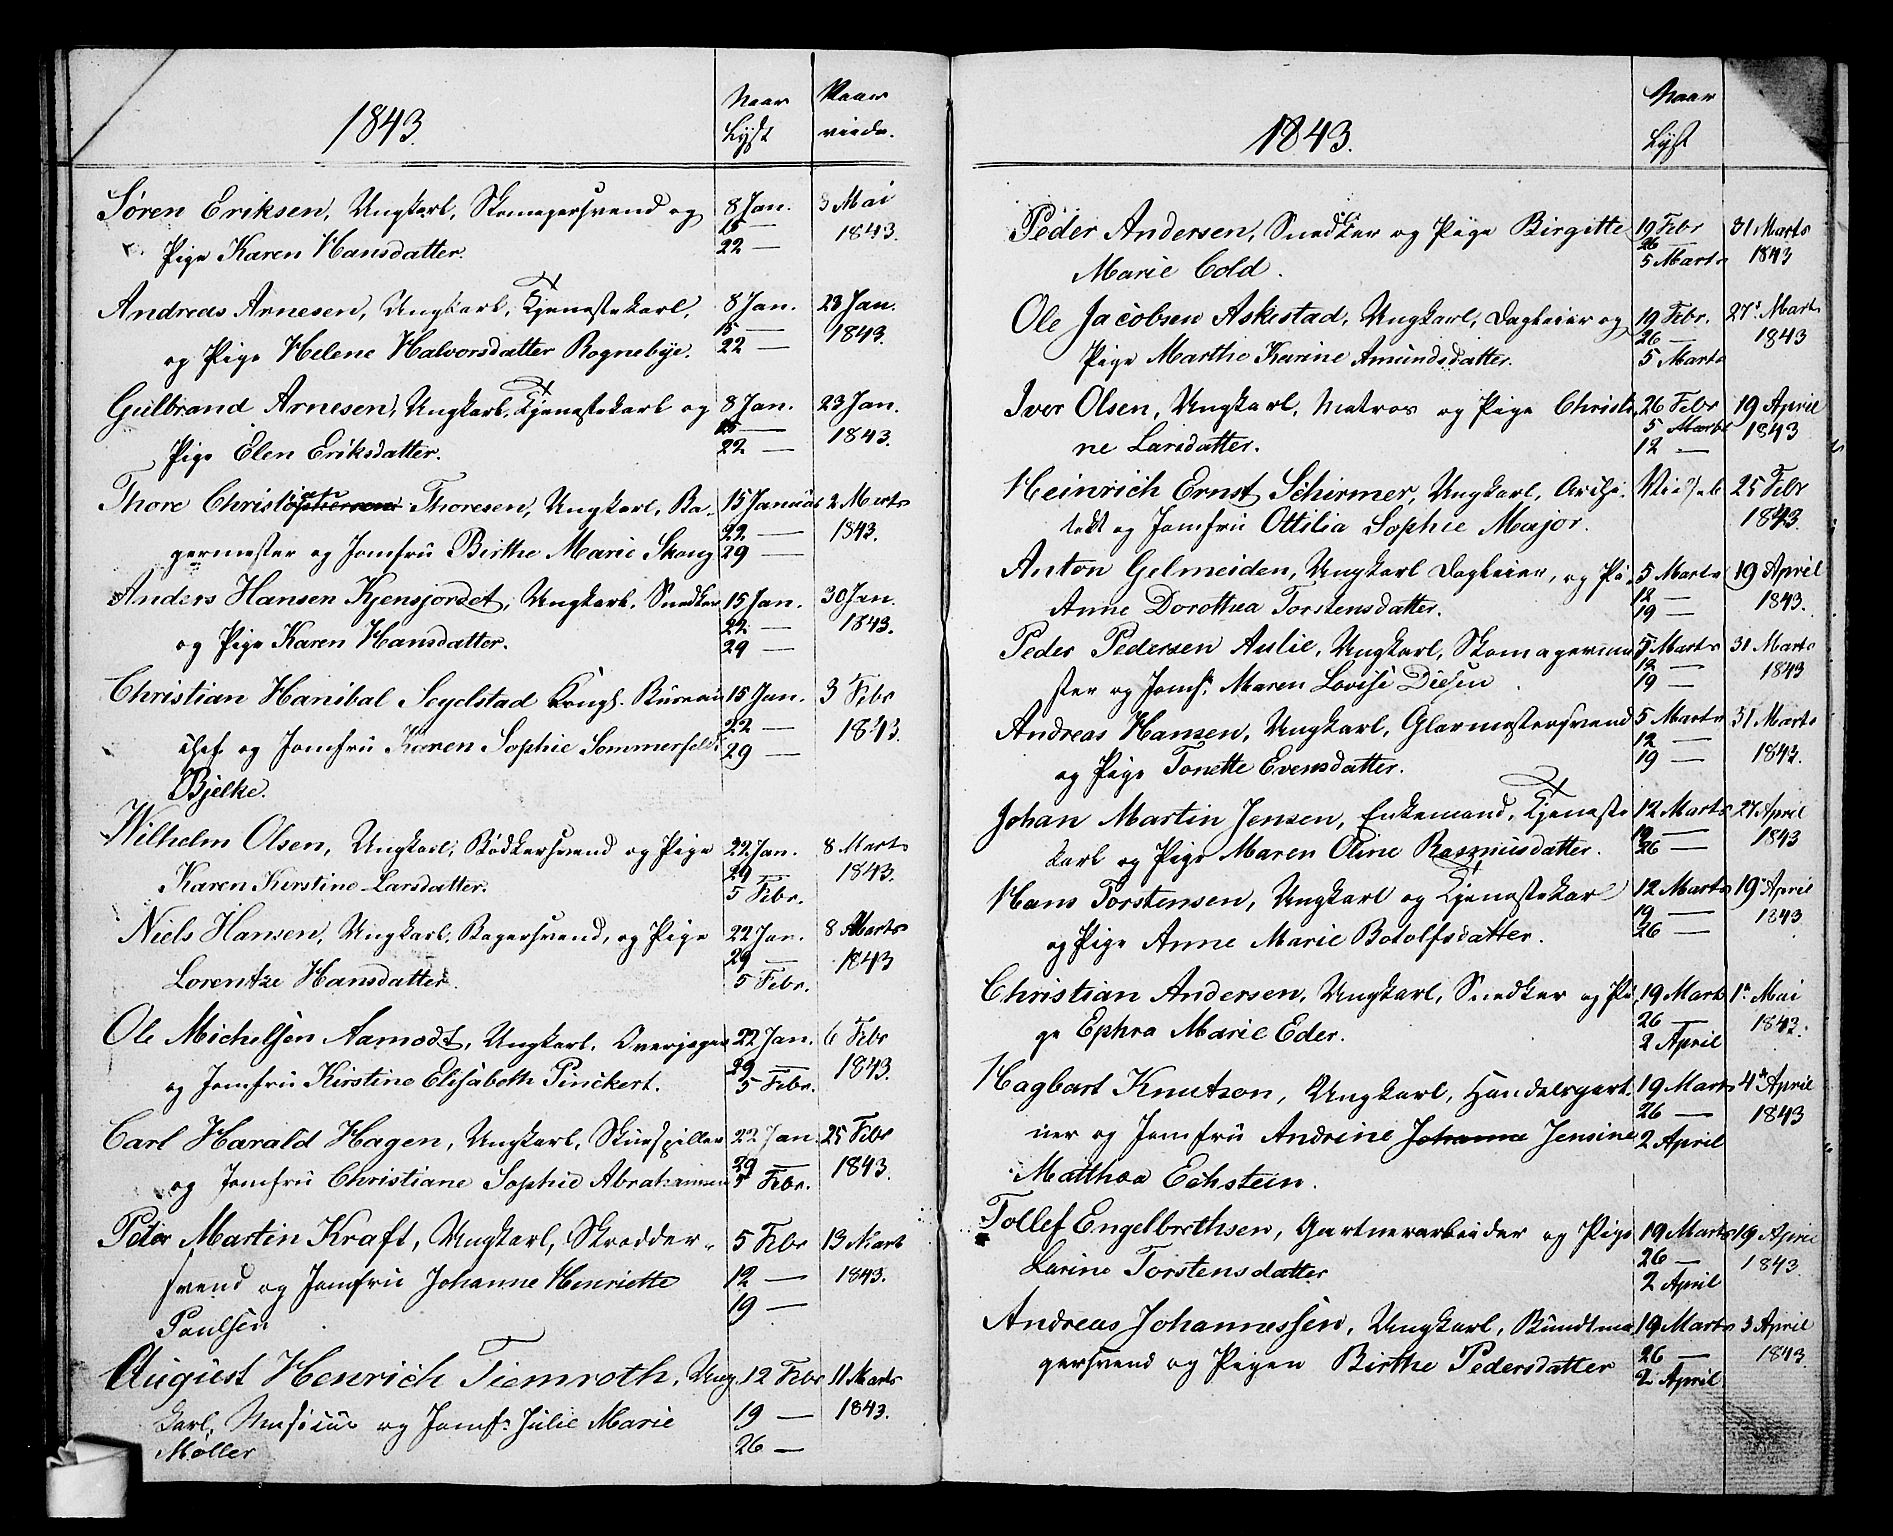 1843.
Naar Lyst
Naar viede.
Søren Eriksen, Ungkarl, Skomagersvend og 8 Jan. 3 Mai
15 — 1843.
Pige Karen Hansdatter. 22 —
Andreas Arnesen, Ungkarl, Tjenestekarl, 8 Jan. 23 Jan.
15 — 1843.
og Pige Helene Halvorsdatter Rognebye. 22 —
Gulbrand Arnesen, Ungkarl, Tjenestekarl og 8 Jan. 23 Jan.
15 — 1843.
Pige Elen Eriksdatter. 22 —
Thore Christ Thoresen, Ungkarl, Ba- 15 Januar 2 Marts
22 — 1843.
germester og Jomfru Birthe Marie Skoug 29 —
Anders Hansen Kjensjordet, Ungkarl, Snedker 15 Jan. 30 Jan.
22 — 1843.
og Pige Karen Hansdatter. 29 —
Christian Hanibal Segelstad Kongl. Bureau 15 Jan. 3 Febr
22 — 1843.
chef og Jomfru Karen Sophie Sommerfeldt 29 —
Bjelke.
Wilhelm Olsen, Ungkarl, Bødkersvend og Pige 22 Jan. 8 Marts
29 — 1843.
Karen Kirstine Larsdatter. 5 Febr.
Niels Hansen, Ungkarl, Bagersvend, og Pige 22 Jan. 8 Marts
29 — 1843
Lorentze Hansdatter. 5 Febr.
Ole Michelsen Aamodt, Ungkarl, Overjæger 22 Jan. 6 Febr
29 — 1843.
og Jomfru Kirstine Elisabeth Pinckert. 5 Febr.
Carl Harald Hagen, Ungkarl, Skuespiller 22 Jan 25 Febr
29 — 1843.
og Jomfru Christiane Sophie Abrahamsen 5 Febr.
Peter Martin Kraft, Ungkarl, Skrædder- 5 Febr 13 Marts
svend og Jomfru Johanne Henriette 12 — 1843.
Paulsen 19 —
August Henrich Tiemroth, Ung 12 Febr 11 Marts
karl, Musicus og Jomfr. Julie Marie 19 — 1843.
Møller 26 —
1843.
Naar Lyst
Peder Andersen, Snedker og Pige Birgitte 19 Febr 31 Marts
26 — 1843
Marie Cold. 5 Marts
Ole Jacobsen Askestad, Ungkarl, Dagleier og 19 Febr. 27. Marts
26 — 1843
Pige Marthe Karine Amundsdatter. 5 Marts
Iver Olsen, Ungkarl, Matros og Pige Christi 26 Febr 19 April
5 Marts 1843
ne Larsdatter. 12 —
Heinrich Ernst Schirmer, Ungkarl, Archi- 25 Febr
tekt og Jomfru Ottilia Sophie Major. 1843.
Anton Gelmeiden, Ungkarl Dagleier, og Pi. 5 Marts 19 April
12 — 1843.
Anne Dorothea Torstensdatter. 19 —
Peder Pedersen Aulie, Ungkarl, Skomagerme 5 Marts 31 Marts
12 — 1843
ster og Jomfr. Maren Lovise Diesen 19 —
Andreas Hansen, Ungkarl, Glarmestersvend 5 Marts 31 Marts
12 — 1843.
og Pige Tonette Evensdatter. 19 —
Johan Martin Jensen, Enkemand, Tjeneste 12 Marts 27 April
19 — 1843
karl og Pige Maren Oline Rasmusdatter. 26 —
Hans Torstensen, Ungkarl og Tjenestekar 12 Marts 19 April
19 — 1843
og Pige Anne Marie Botolfsdatter. 26 —
Christian Andersen, Ungkarl, Snedker og Pi 19 Marts 1. Mai
26 — 1843.
ge Ephra Marie Eder. 2 April
Hagbart Knutzon, Ungkarl, Handelsgart- 19 Marts 4 April
26 — 1843
ner og Jomfru Andrine Johanne Jensine 2 April
Matthea Echstein.
Tollef Engelbrethsen, Gartnerarbeider og Pige 19 Marts 19 April
26 — 1843
Larine Torstensdatter 2 April
Andreas Johannessen, Ungkarl, Bundtma 19 Marts 3 April
26 — 1843.
gersvend og Pigen Birthe Pedersdatter 2 April